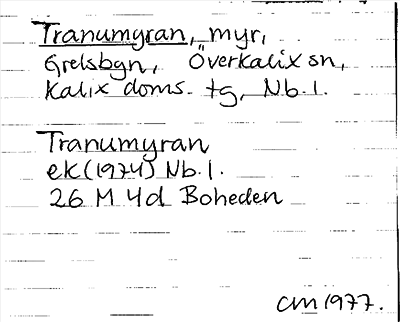 Tranumyran, myr,
Grelsbyn, Överkalix sn,
Kalix doms. tg, Nb. l.
Tranumyran
ek (1974) Nb. l.
26 M 4d Boheden
CM 1977.